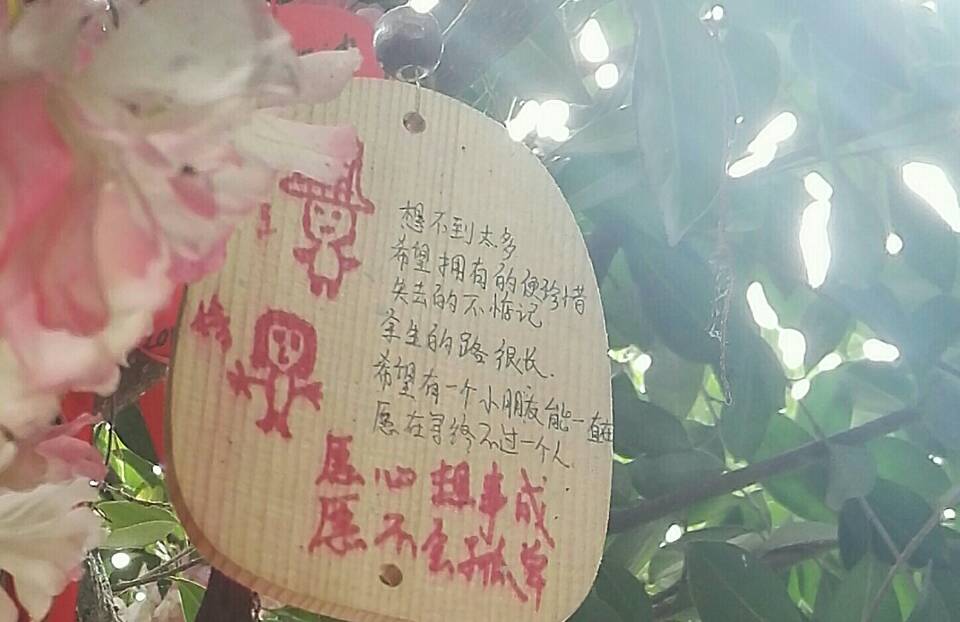 想不到太多
希望拥有的便珍惜
失去的不惦记
余生的路很长.
希望有一个小朋友能一直在
愿在寻终不过一个人
愿心想事成.
愿不会孤单